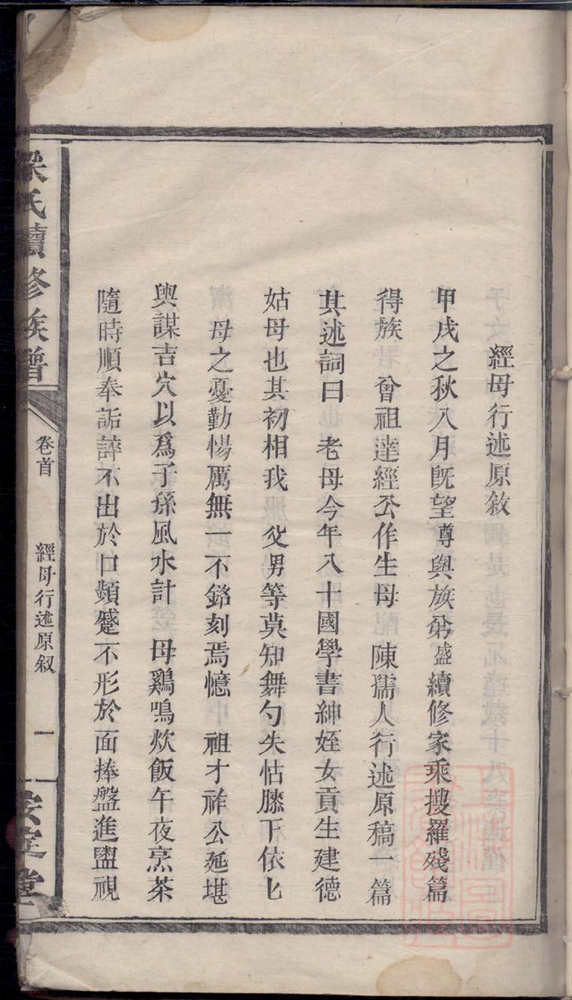 經母行述原敘
甲戌之秋八月既望尊與族弟盛續修家乘搜羅殘篇
得族 曾祖達經公作生母 陳孺人行述原稿一篇
其述詞曰 老母今年八十國學書紳姪女貢生建德
姑母也其初相我 父男等莫知舞勺失怙膝下依匕
母之憂勤惕厲無一不銘刻焉憶中 祖才祚公延堪
輿謀吉穴以為子孫風水計 母鷄鳴炊飯午夜烹茶
隨時順奉詬誶不出於口顰蹙不形於面捧盤進盥視
梁氏續修族譜
卷首
經母行述原敘
一
安定堂